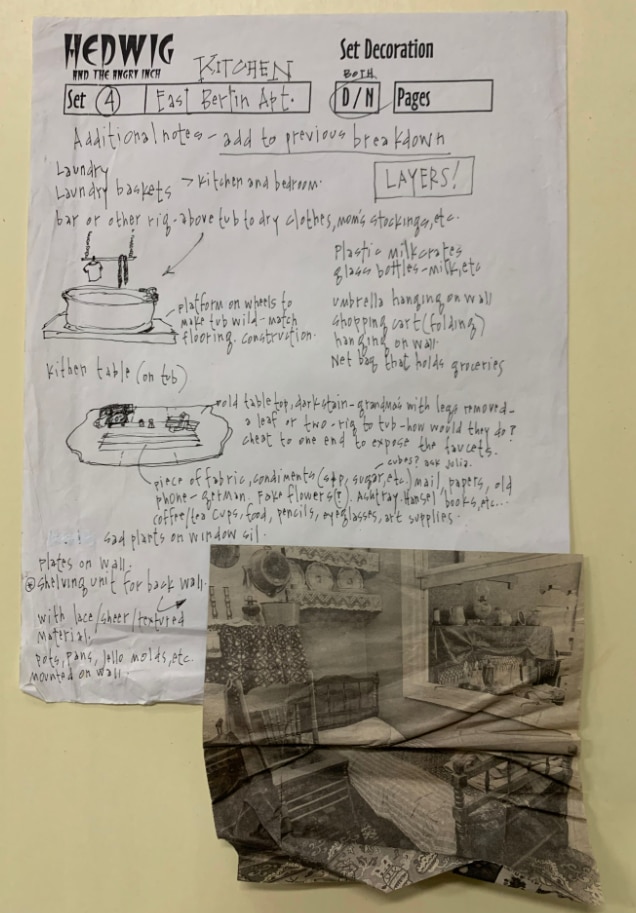 HEDWIG
AND THE ANGRY INCH
Set Decoration
KITCHEN
BOTH
Set 4 East Berlin Apt. D/N Pages
Additional notes - add to previous breakdown
LAYERS!
Laundry
Laundry baskets > kitchen and bedroom.
bar or other rig - above tub to dry clothes, mom's stockings, etc.
plastic milkcrates
glass bottles - milk, etc
umbrella hanging on wall
shopping cart (folding)
hanging on wall.
Net bag that holds groceries
platform on wheels to
make tub wild - match
flooring. construction.
kitchen table (on tub)
old tabletop, dark stain - grandmas with legs removed -
a leaf or two - rig to tub - how would they do?
cheat to one end to expose the faucets.
cubes? ask julia.
piece of fabric, condiments (s+p, sugar, etc.) mail, papers, old
phone - german. Fake flowers(?). Ashtray. Hansel books, etc...
coffee/tea cups, food, pencils, eyeglasses, art supplies.
sad plants on window sil.
plates on wall.
shelving unit for back wall.
with lace/sheer/textured
material.
pots, pans, jello molds, etc.
mounted on wall.